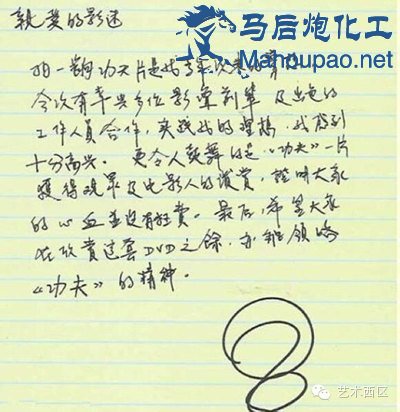 親愛的影迷
马后炮化工
Mahoupao.net
拍一齣功夫片是我多年以來的
今次有幸與各位影壇前輩及出色的
工作人員合作，實踐我的理想，我感到
十分高興。更令人鼓舞的是《功夫》一片
獲得觀眾及电影人的讚賞，證明大家
的心血並沒有枉費。最后，希望大家
在欣賞這套DVD之餘，亦能領略
《功夫》的精神。
艺术西区